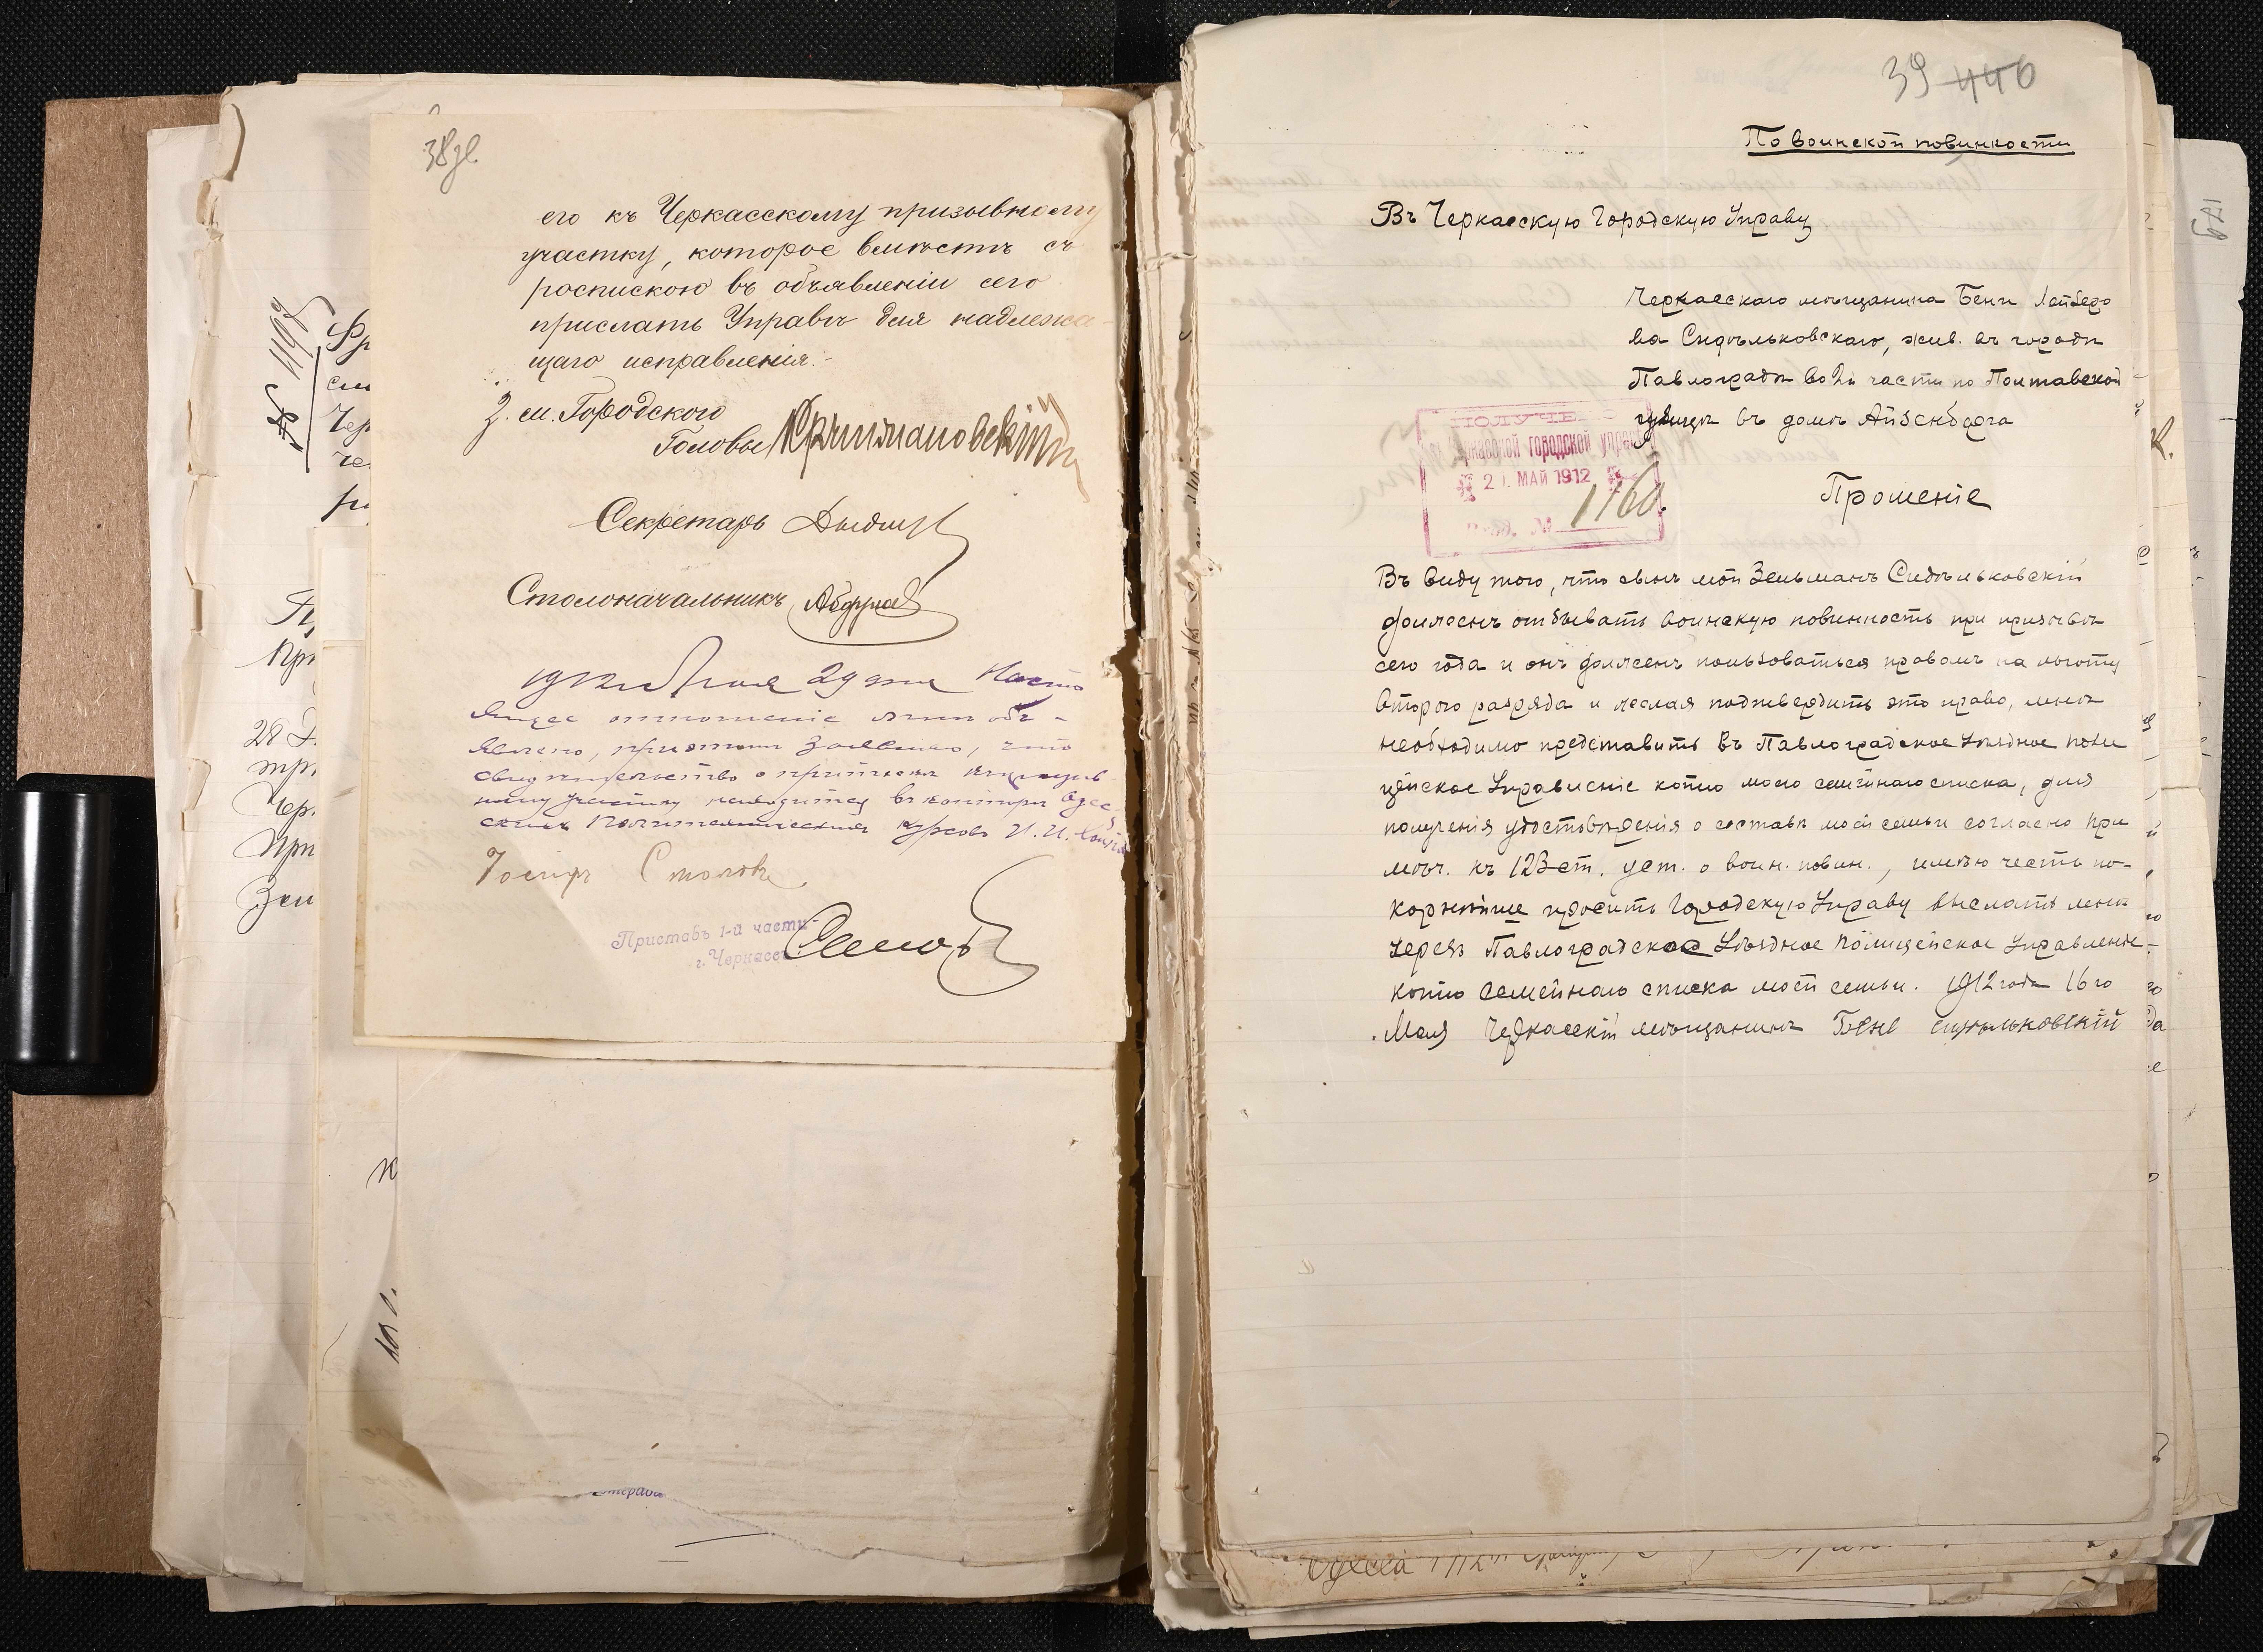 38 зв.
его къ Черкасскому призывному
участку, которое вмѣстѣ съ
роспискою въ объявленіи сего
прислать Управѣ для надлежа-
щаго исправленія.-
З. м. Городского
Головы
Секретарь
Столоначальникъ
1912 г. Мая 29 дня Насто
ящее отношеніе мнѣ объ-
явлено, при этомъ заявляю, что
свидѣтельство о припискѣ къ призыв
ному участку находится въ конторѣ Одес
скихъ Политехническихъ курсовъ И. И.
Приставъ 1-й части
г. Черкассъ
№ 1197
39 446
По воинской повинности
Въ Черкасскую Городскую Управу
Черкасскаго мѣщанина Бени Лейберо
ва Сидѣльковскаго, жив. въ городѣ
Павлоградѣ во 2й части по Полтавской
улицѣ въ домѣ Айзенберга
ПОЛУЧЕНО
Черкасской городской управой
21 МАЙ 1912
№ 1160.
Прошеніе
Въ виду того, что сынъ мой Зельманъ Сидѣльковскій
долженъ отбывать воинскую повинность при призывѣ
сего года и онъ долженъ пользоваться правомъ на льготу
второго разряда и желая подтвердить это право, мнѣ
необходимо представить въ Павлоградское Уѣздное поли
цейское Управленіе копію моего семейнаго списка, для
полученія удостовѣренія о составѣ моей семьи согласно при
мѣч. къ 123 ст. уст. о воин. повин., имѣю честь по-
корнѣйше просить Городскую Управу выслать мнѣ
черезъ Павлоградское Уѣздное Полицейское Управленіе-
копію семейнаго списка моей семьи. 1912 года 16 го
Мая Черкасскій мѣщанинъ Бене Сидѣльковскій